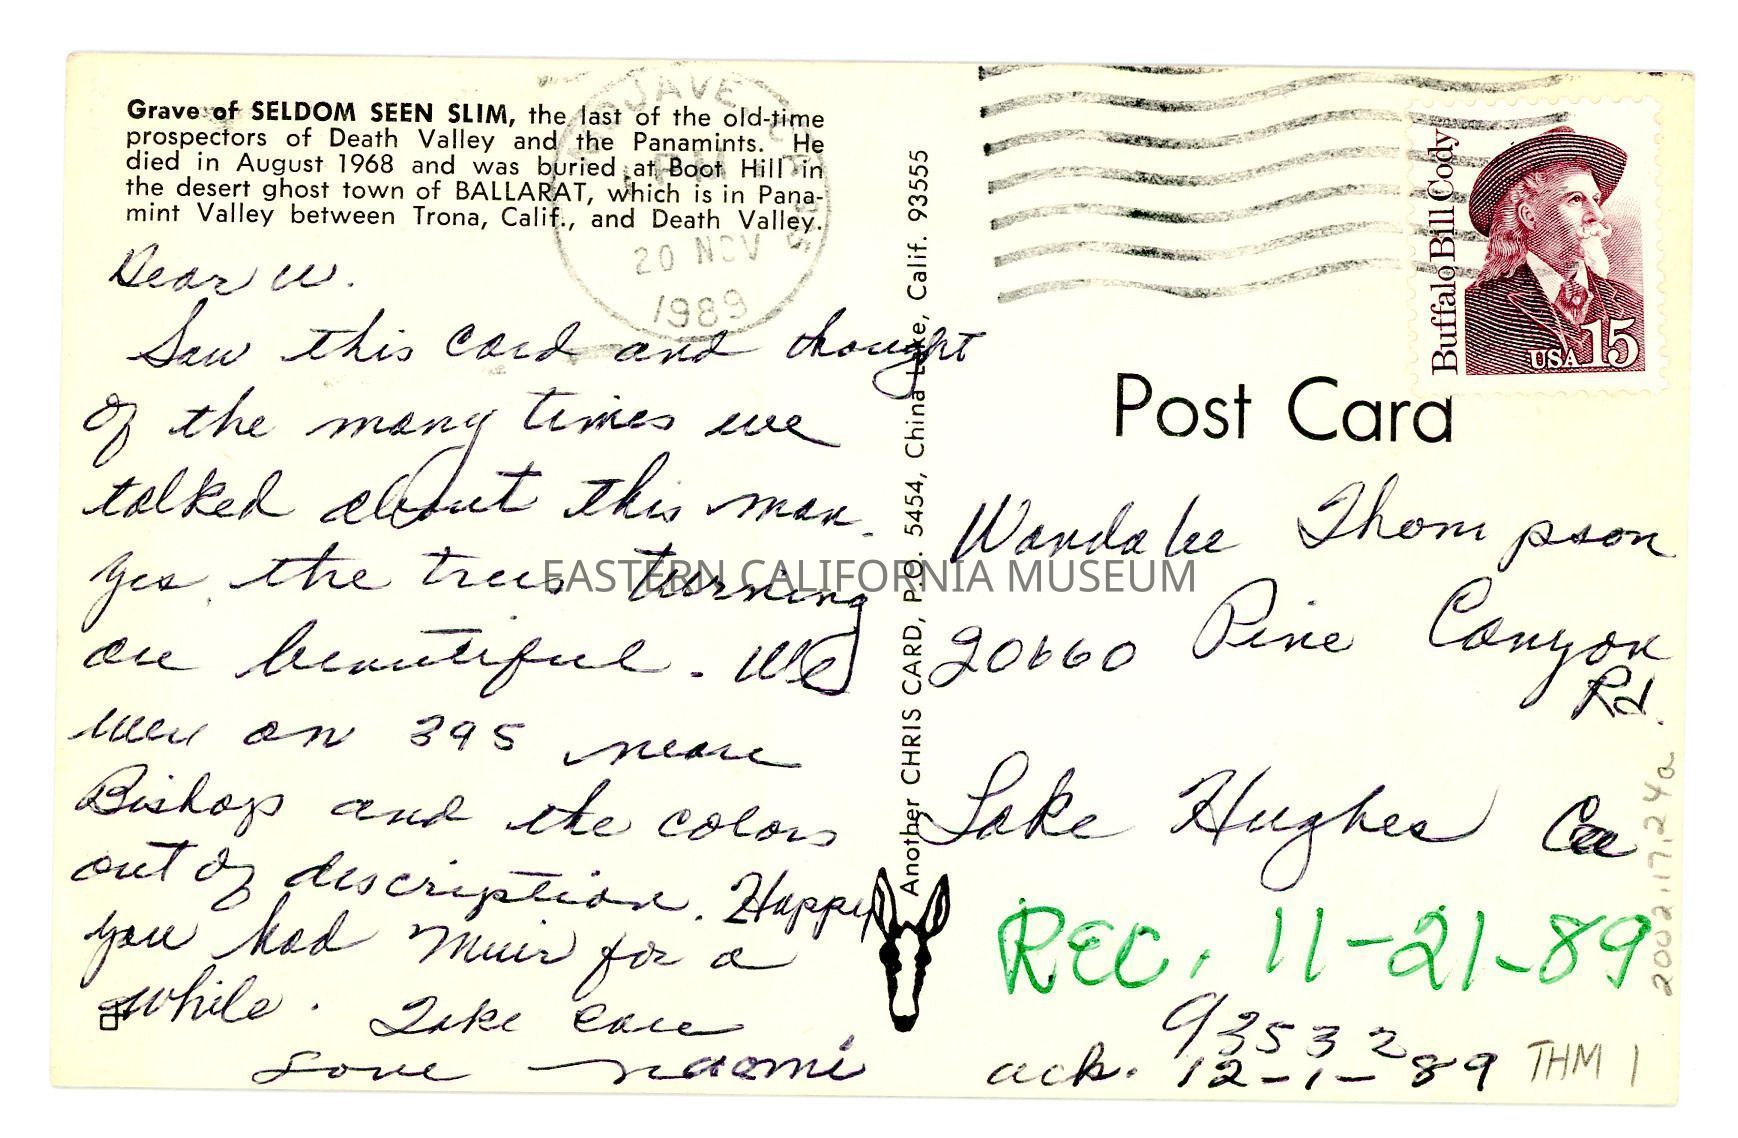 Grave of SELDOM SEEN SLIM, the last of the old-time
prospectors of Death Valley and the Panamints. He
died in August 1968 and was buried at Boot Hill in
the desert ghost town of BALLARAT, which is in Pana-
mint Valley between Trona, Calif., and Death Valley.
Dear W.
Saw this card and thought
of the many times we
talked about this man.
Yes, the trees turning
are beautiful. We
were on 395 near
Bishop and the colors
out of description. Happy
you had Muir for a
while. Take care
Love Naomi
Another CHRIS CARD, P.O. 5454, China Lake, Calif. 93555
MOJAVE
PM
20 NOV
1989
Buffalo Bill Cody
USA 15
Post Card
Wandalee Thompson
20660 Pine Canyon
Rd.
Lake Hughes Ca
REC. 11-21-89
93532
ack. 12-1-89
THM 1
2002.17.24a
EASTERN CALIFORNIA MUSEUM